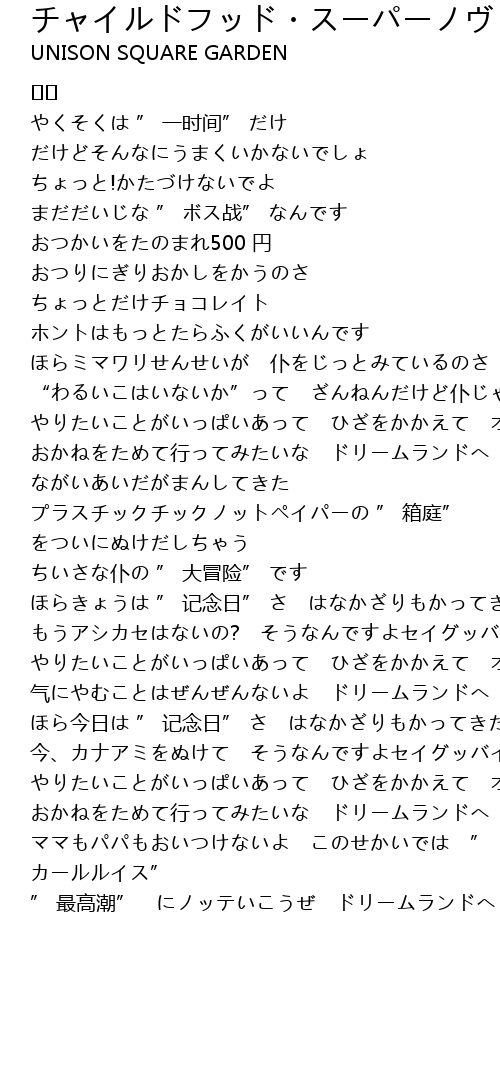 チャイルドフッド・スーパーノヴ
UNISON SQUARE GARDEN
やくそくは ” 一时间” だけ
だけどそんなにうまくいかないでしょ
ちょっと!かたづけないでよ
まだだいじな ” ボス战” なんです
おつかいをたのまれ500 円
おつりにぎりおかしをかうのさ
ちょっとだけチョコレイト
ホントはもっとたらふくがいいんです
ほらミマワリせんせいが　仆をじっとみているのさ
“わるいこはいないか”って　ざんねんだけど仆じゃ
やりたいことがいっぱいあって　ひざをかかえて　オ
おかねをためて行ってみたいな　ドリームランドへ
ながいあいだがまんしてきた
プラスチックチックノットペイパーの ” 箱庭”
をついにぬけだしちゃう
ちいさな仆の ” 大冒险” です
ほらきょうは ” 记念日” さ　はなかざりもかってき
もうアシカセはないの?　そうなんですよセイグッバ
やりたいことがいっぱいあって　ひざをかかえて　オ
气にやむことはぜんぜんないよ　ドリームランドへ
ほら今日は ” 记念日” さ　はなかざりもかってきた
今、カナアミをぬけて　そうなんですよセイグッバイ
やりたいことがいっぱいあって　ひざをかかえて　オ
おかねをためて行ってみたいな　ドリームランドへ
ママもパパもおいつけないよ　このせかいでは　”
カールルイス”
” 最高潮”　 にノッテいこうぜ　ドリームランドへ